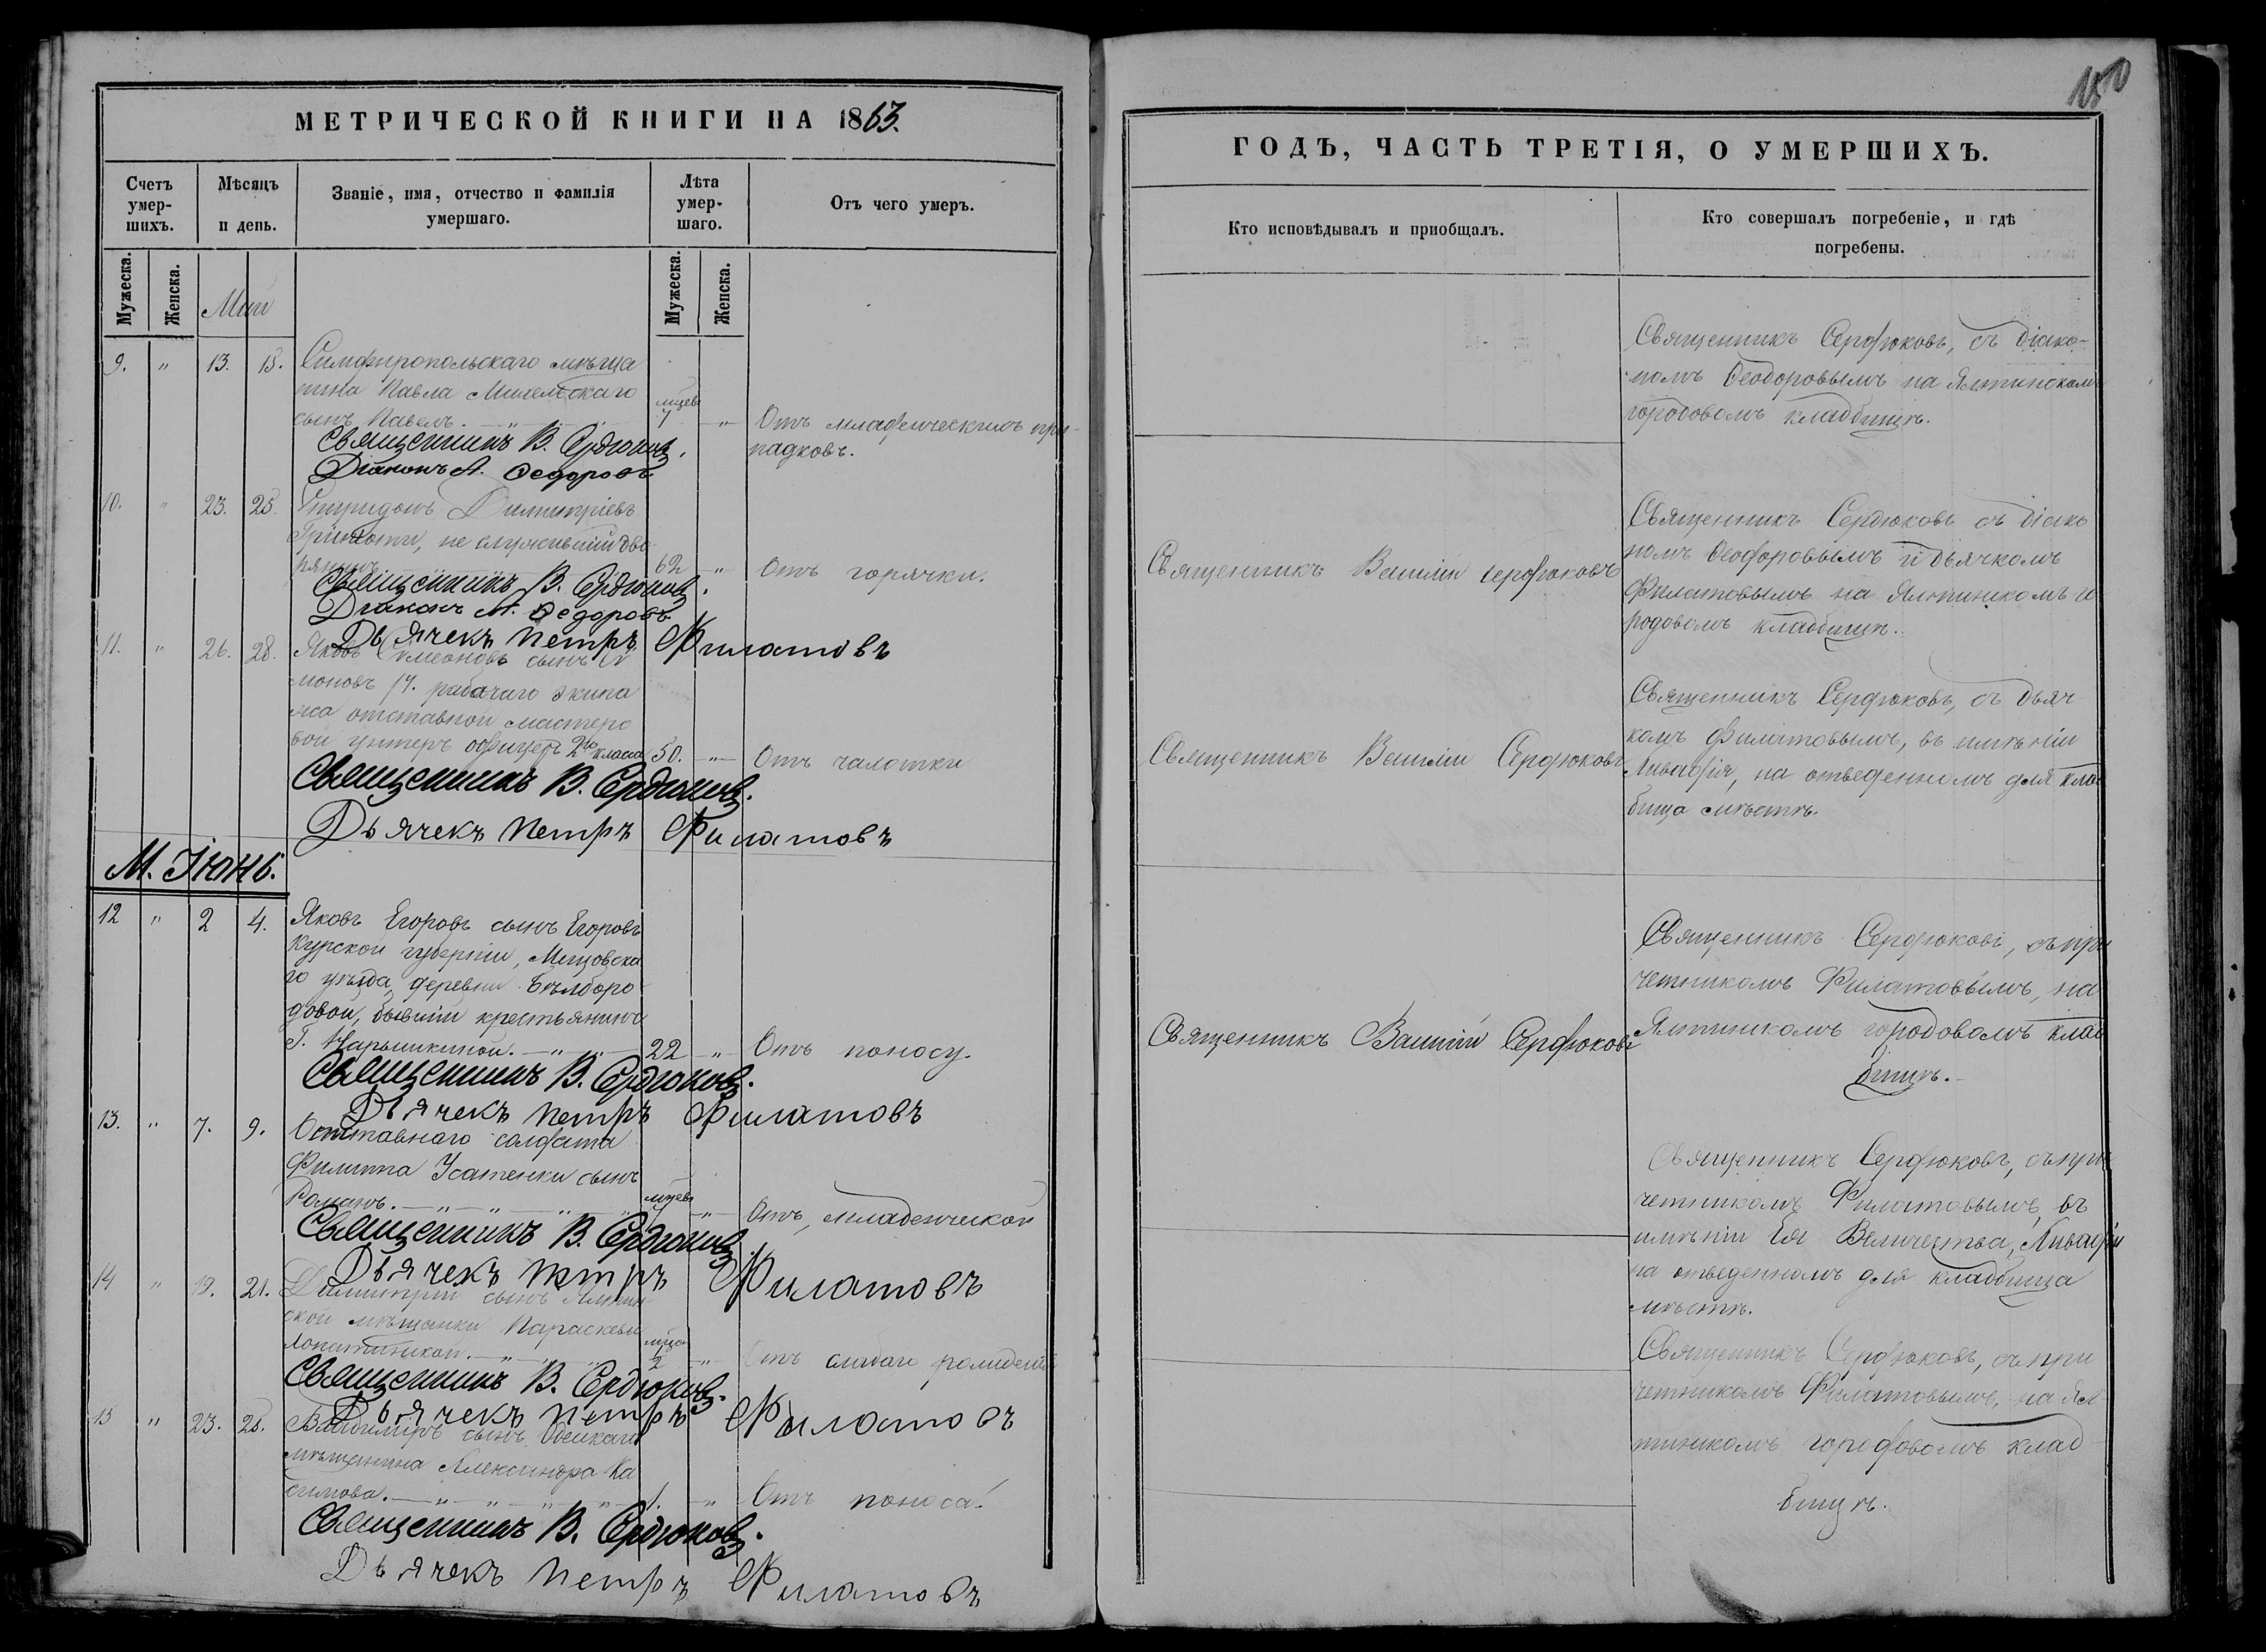 МЕТРИЧЕСКОЙ КНИГИ НА 1863.
Счетъ умер-шихъ.
Мѣсяцъ и день.
Званіе, имя, отчество и фамилія умершаго.
Лѣта умер-шаго.
Отъ чего умеръ.
Мужеска.
Женска.
Май
Мужеска.
Женска.
9. " 13. 15. Симферопольскаго мѣща
нина Павла
сынъ Павелъ. 7 " Отъ младенческихъ при-
падковъ.
Священникъ В. Сердюковъ.
Діаконъ А. Ѳедоровъ
10. " 23. 25. Спиридонъ Димитріевъ
не служившій дво
рянинъ 62 " Отъ горячки.
Священникъ В. Сердюковъ.
Діаконъ А. Ѳедоровъ
Дьячекъ Петръ Филатовъ
11. " 26. 28. Яковъ Симеоновъ сынъ
моновъ 17. рабочаго экипа
жа отставной мастеро
вой унтеръ офицеръ 2го класса 50. " Отъ чахотки
Священникъ В. Сердюковъ.
Дьячекъ Петръ Филатовъ
М. Іюнь.
12 " 2 4. Яковъ Егоровъ сынъ Егоровъ
Курской губерніи,
го уѣзда, деревни Бѣлборо
довой, бывшій крестьянинъ
Г. Нарышкиной. 22 " Отъ поносу.
Священникъ В. Сердюковъ.
Дьячекъ Петръ Филатовъ
13. " 7. 9. Отставнаго солдата
Филиппа Усатенки сынъ
Романъ. 7 " Отъ младенческой
Священникъ В. Сердюковъ.
Дьячекъ Петръ Филатовъ
14 " 19. 21. Димитрій сынъ Ялтин-
ской мѣщанки Параскевы
2 " Отъ слабаго рожденія
Священникъ В. Сердюковъ.
Дьячекъ Петръ Филатовъ
15 " 23. 25. Владимиръ сынъ Одескаго
мѣщанина Александра Ка
симова. 1. " Отъ поноса.
Священникъ В. Сердюковъ.
Дьячекъ Петръ Филатовъ
150
ГОДЪ, ЧАСТЬ ТРЕТІЯ, О УМЕРШИХЪ.
Кто исповѣдывалъ и пріобщалъ.
Кто совершалъ погребеніе, и гдѣ
погребены.
Священникъ Сердюковъ, съ діако-
номъ Ѳеодоровымъ на Ялтинскомъ
городовомъ кладбищѣ.
Священникъ Василій Сердюковъ
Священникъ Сердюковъ съ діако
номъ Ѳеодоровымъ и дьячкомъ
Филатовымъ на Ялтинскомъ го
родовомъ кладбищѣ.
Священникъ Василій Сердюковъ
Священникъ Сердюковъ, съ дьяч
комъ Филатовымъ, въ имѣніи
Ливадія, на отведенномъ для клад
бища мѣстѣ.
Священникъ Василій Сердюковъ
Священникъ Сердюковъ, съ при
четникомъ Филатовымъ, на
Ялтинскомъ городовомъ клад
бищѣ.
Священникъ Сердюковъ, съ при
четникомъ Филатовымъ, въ
имѣніи Ея Величества, Ливадіи
на отведенномъ для кладбища
мѣстѣ.
Священникъ Сердюковъ, съ при
четникомъ Филатовымъ, на Ял
тинскомъ городовомъ клад
бищѣ.